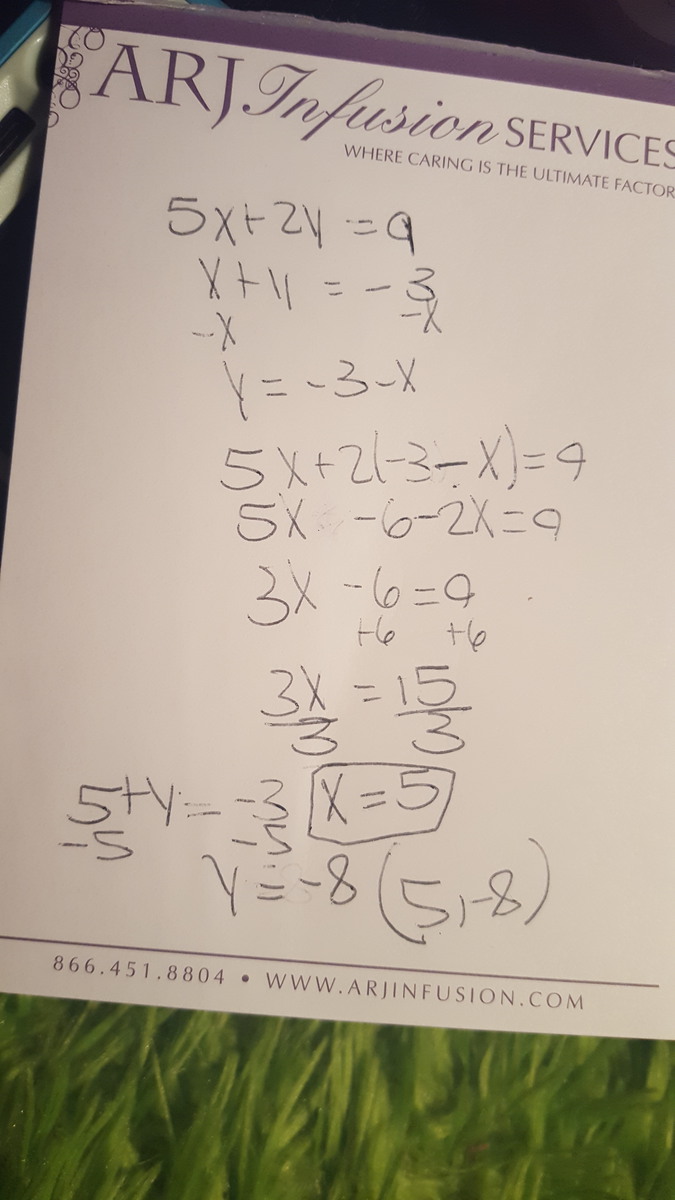 ARJ Infusion SERVICES
WHERE CARING IS THE ULTIMATE FACTOR
5x+2y = 9
x+y = -3
-x -x
y = -3-x
5x+2(-3-x)=9
5x -6-2x=9
3x -6=9
+6 +6
3x = 15
3 3
5+y= -3 x=5
-5 -5
y=-8 (5,-8)
866.451.8804 • WWW.ARJINFUSION.COM